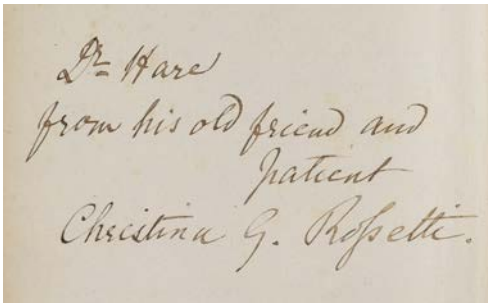 Dr Hare
from his old friend and
patient
Christina G. Rossetti.